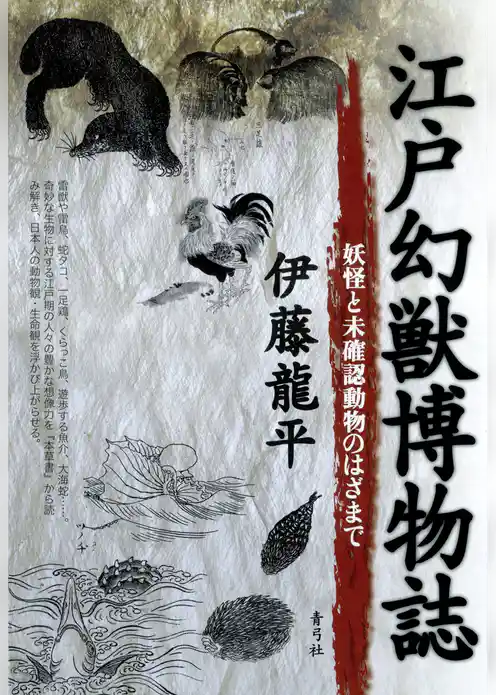 江戸幻獣博物誌
妖怪と未確認動物のはざまで
伊藤龍平
雷獣や雷鳥、蛇タコ、一足鶏、くらっこ鳥、遊歩する魚介、大海蛇……。
奇妙な生物に対する江戸期の人々の豊かな想像力を『本草書』から読
み解き、日本人の動物観・生命観を浮かび上がらせる。
ツノヂ
青弓社